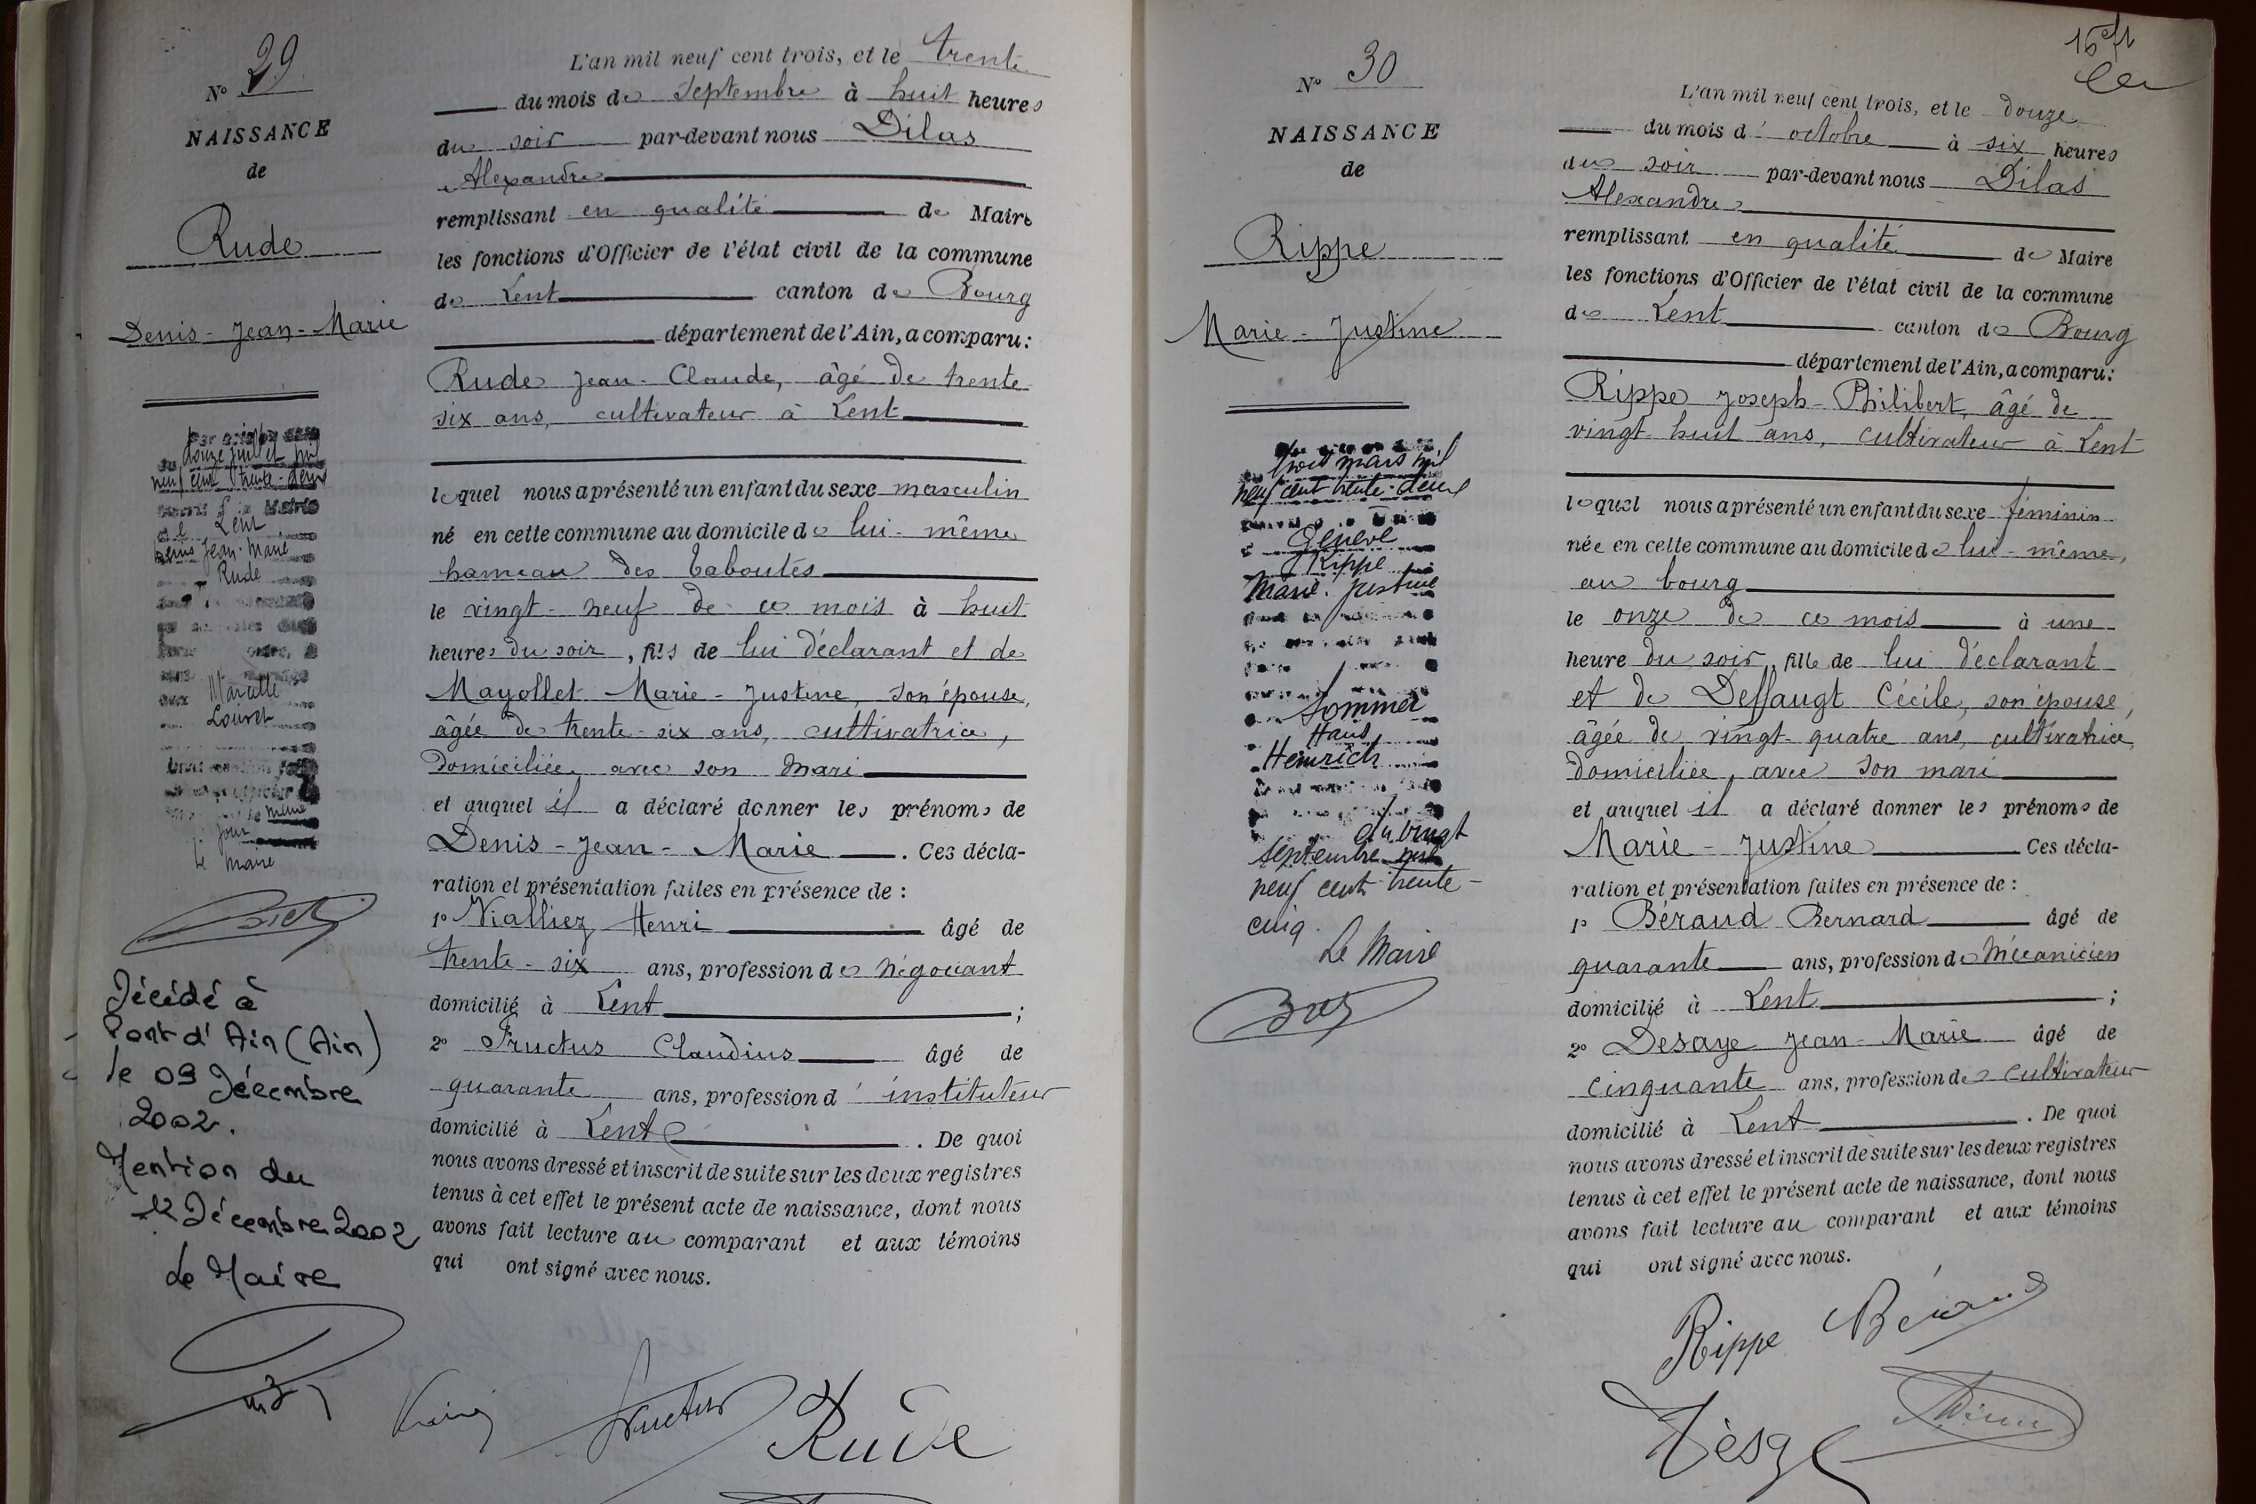 Nº 29
NAISSANCE
de
Rude
Denis-Jean-Marie
douze juillet mil
neuf cent trente-deux
Lent
Denis Jean-Marie
Rude
Marcelle
Louise
même
jour
Le Maire
Décédé à
Pont d'Ain (Ain)
le 09 Décembre
2002.
Mention du
12 Décembre 2002
Le Maire
L'an mil neuf cent trois, et le trente
du mois de Septembre à huit heures
du soir par-devant nous Dilas
Alexandre
remplissant en qualité de Maire
les fonctions d'Officier de l'état civil de la commune
de Lent canton de Bourg
département de l'Ain, a comparu :
Rude Jean-Claude, âgé de trente-
six ans, cultivateur à Lent
lequel nous a présenté un enfant du sexe masculin
né en cette commune au domicile de lui-même
hameau des
le vingt-neuf de ce mois à huit
heures du soir, fils de lui déclarant et de
Mayollet Marie-Justine, son épouse,
âgée de trente-six ans, cultivatrice,
domiciliée avec son mari
et auquel il a déclaré donner les prénoms de
Denis-Jean-Marie. Ces décla-
ration et présentation faites en présence de :
1º Vialliez Henri âgé de
trente-six ans, profession de Négociant
domicilié à Lent ;
2º Fructus Claudius âgé de
quarante ans, profession d'instituteur
domicilié à Lent. De quoi
nous avons dressé et inscrit de suite sur les deux registres
tenus à cet effet le présent acte de naissance, dont nous
avons fait lecture au comparant et aux témoins
qui ont signé avec nous.
Fructus Rude
Nº 30
NAISSANCE
de
Rippe
Marie-Justine
trois mars mil
neuf cent trente-deux
Genève
Rippe
Marie-Justine
Sommer
Hans
Heinrich
du vingt
septembre mil
neuf cent trente-
cinq.
Le Maire
L'an mil neuf cent trois, et le douze
du mois d'octobre à six heures
du soir par-devant nous Dilas
Alexandre
remplissant en qualité de Maire
les fonctions d'Officier de l'état civil de la commune
de Lent canton de Bourg
département de l'Ain, a comparu :
Rippe Joseph-Philibert, âgé de
vingt-huit ans, cultivateur à Lent
lequel nous a présenté un enfant du sexe féminin
née en cette commune au domicile de lui-même,
au bourg
le onze de ce mois à une
heure du soir, fille de lui déclarant
et de Deffaugt Cécile, son épouse,
âgée de vingt-quatre ans, cultivatrice,
domiciliée avec son mari
et auquel il a déclaré donner les prénoms de
Marie-Justine Ces décla-
ration et présentation faites en présence de :
1º Béraud Bernard âgé de
quarante ans, profession de Mécanicien
domicilié à Lent ;
2º Desaye Jean-Marie âgé de
cinquante ans, profession de cultivateur
domicilié à Lent. De quoi
nous avons dressé et inscrit de suite sur les deux registres
tenus à cet effet le présent acte de naissance, dont nous
avons fait lecture au comparant et aux témoins
qui ont signé avec nous.
Rippe Béraud